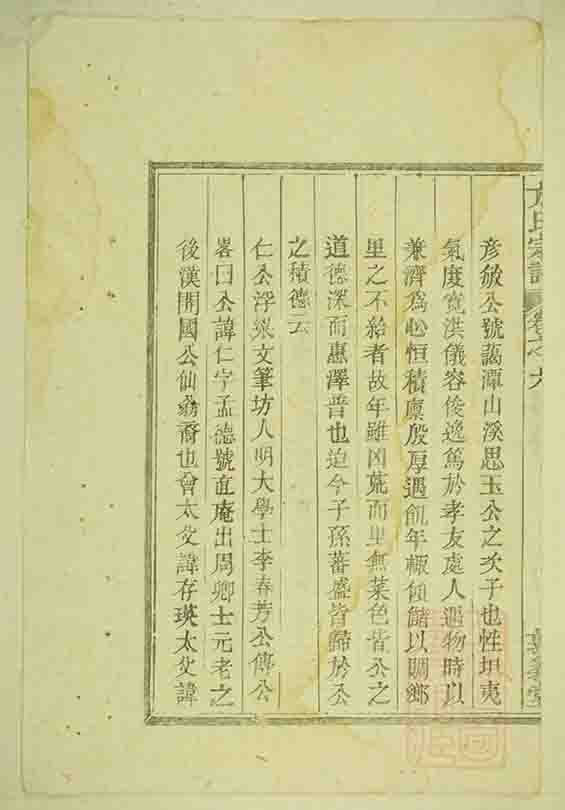 方氏宗譜 卷之六
彥敏公號藹潭山溪思玉公之次子也性坦夷
氣度寬洪儀容俊逸篤於孝友處人遇物時以
兼濟爲心恒積廩殷厚遇飢年輒傾儲以賙鄉
里之不給者故年雖凶荒而里無菜色皆公之
道德深而惠澤普也迨今子孫蕃盛皆歸於公
之積德云
仁公浮梁文筆坊人明大學士李春芳公傳公
畧曰公諱仁字孟德號直庵出周卿士元老之
後漢開國公仙翁裔也會太父諱存瑛太父諱